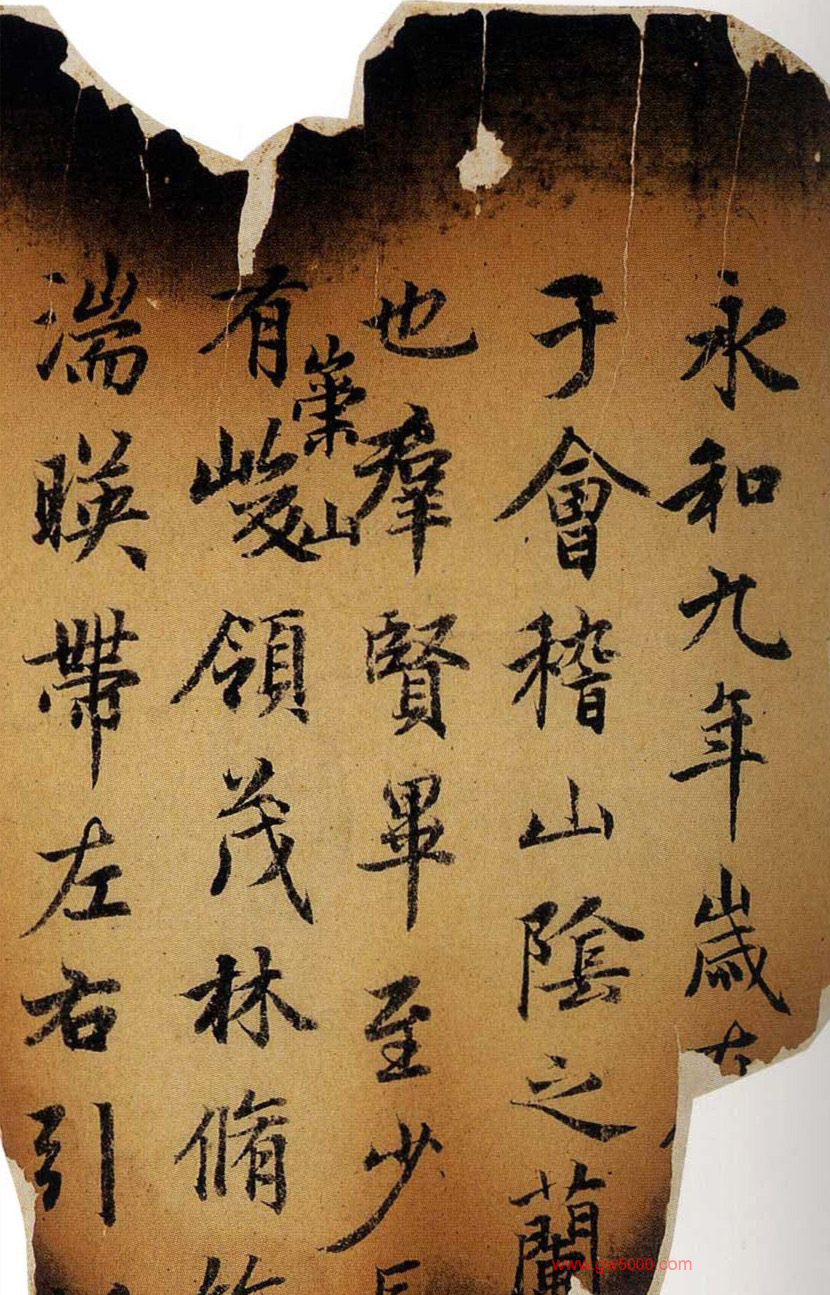 永和九年歲
于會稽山陰之蘭
也羣賢畢至少
崇山
有峻領茂林脩
湍暎帶左右引
www.gw5000.com